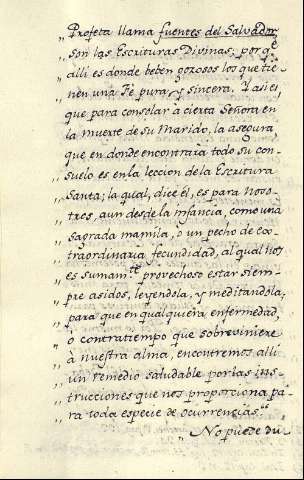 „ Profeta llama fuentes del Salvador,
„ son las Escrituras Divinas; porqᵉ
„ alli es donde beben gozosos los que tie
„ nen una Fé pura, y sincera. Y asi el
„ que para consolar à cierta Señora en
„ la muerte de su Marido, la asegura
„ que en donde encontrara todo su con
„ suelo es en la leccion de la Escritura
„ Santa; la qual, dice él, es para Noso
„ tros, aun desde la infancia, como una
„ sagrada mamila, o un pecho de ex
„ traordinaria fecundidad, al qual nos
„ es sumamᵗᵉ provechoso estar siem
„ pre asidos, leyendola, y meditandola;
„ para que en qualquiera enfermedad,
„ o contratiempo que sobreviniere
„ à nuestra alma, encontremos alli
„ un remedio saludable por las ins
„ trucciones que nos proporciona pa
„ ra toda especie de ocurrencias.“
„ No puede du